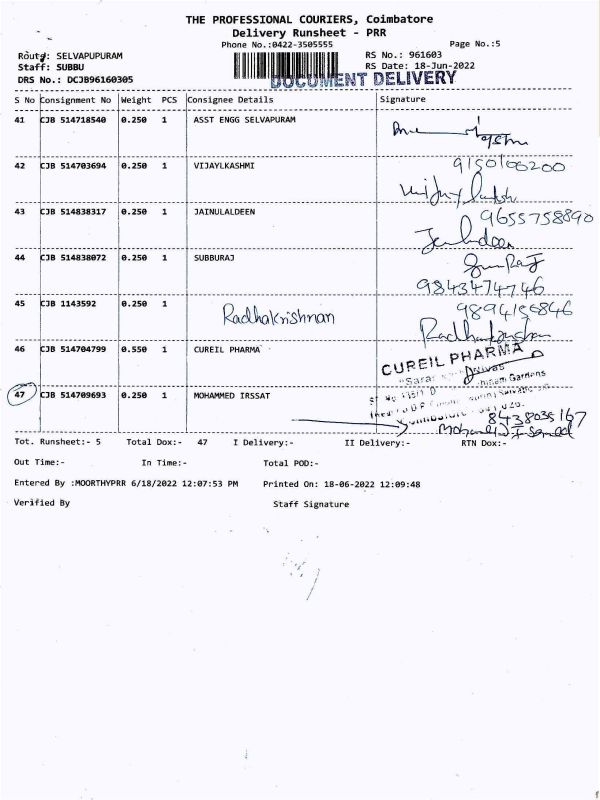 THE PROFESSIONAL COURIERS, Coimbatore
Delivery Runsheet - PRR
Phone No.:0422-3505555 Page No.:5
Route: SELVAPUPURAM RS No.: 961603
Staff: SUBBU RS Date: 18-Jun-2022
DRS No.: DCJB96160305 DOCUMENT DELIVERY
S No Consignment No Weight PCS Consignee Details Signature
41 CJB 514718540 0.250 1 ASST ENGG SELVAPURAM
42 CJB 514703694 0.250 1 VIJAYLKASHMI 9150100200
43 CJB 514838317 0.250 1 JAINULALDEEN 9655758890
44 CJB 514838072 0.250 1 SUBBURAJ
9843474746
45 CJB 1143592 0.250 1 Radhakrishnan 9894156846
46 CJB 514704799 0.550 1 CUREIL PHARMA CUREIL PHARMA
Gardens
47 CJB 514709693 0.250 1 MOHAMMED IRSSAT
8438035167
Tot. Runsheet:- 5 Total Dox:- 47 I Delivery:- II Delivery:- RTN Dox:-
Out Time:- In Time:- Total POD:-
Entered By :MOORTHYPRR 6/18/2022 12:07:53 PM Printed On: 18-06-2022 12:09:48
Verified By Staff Signature